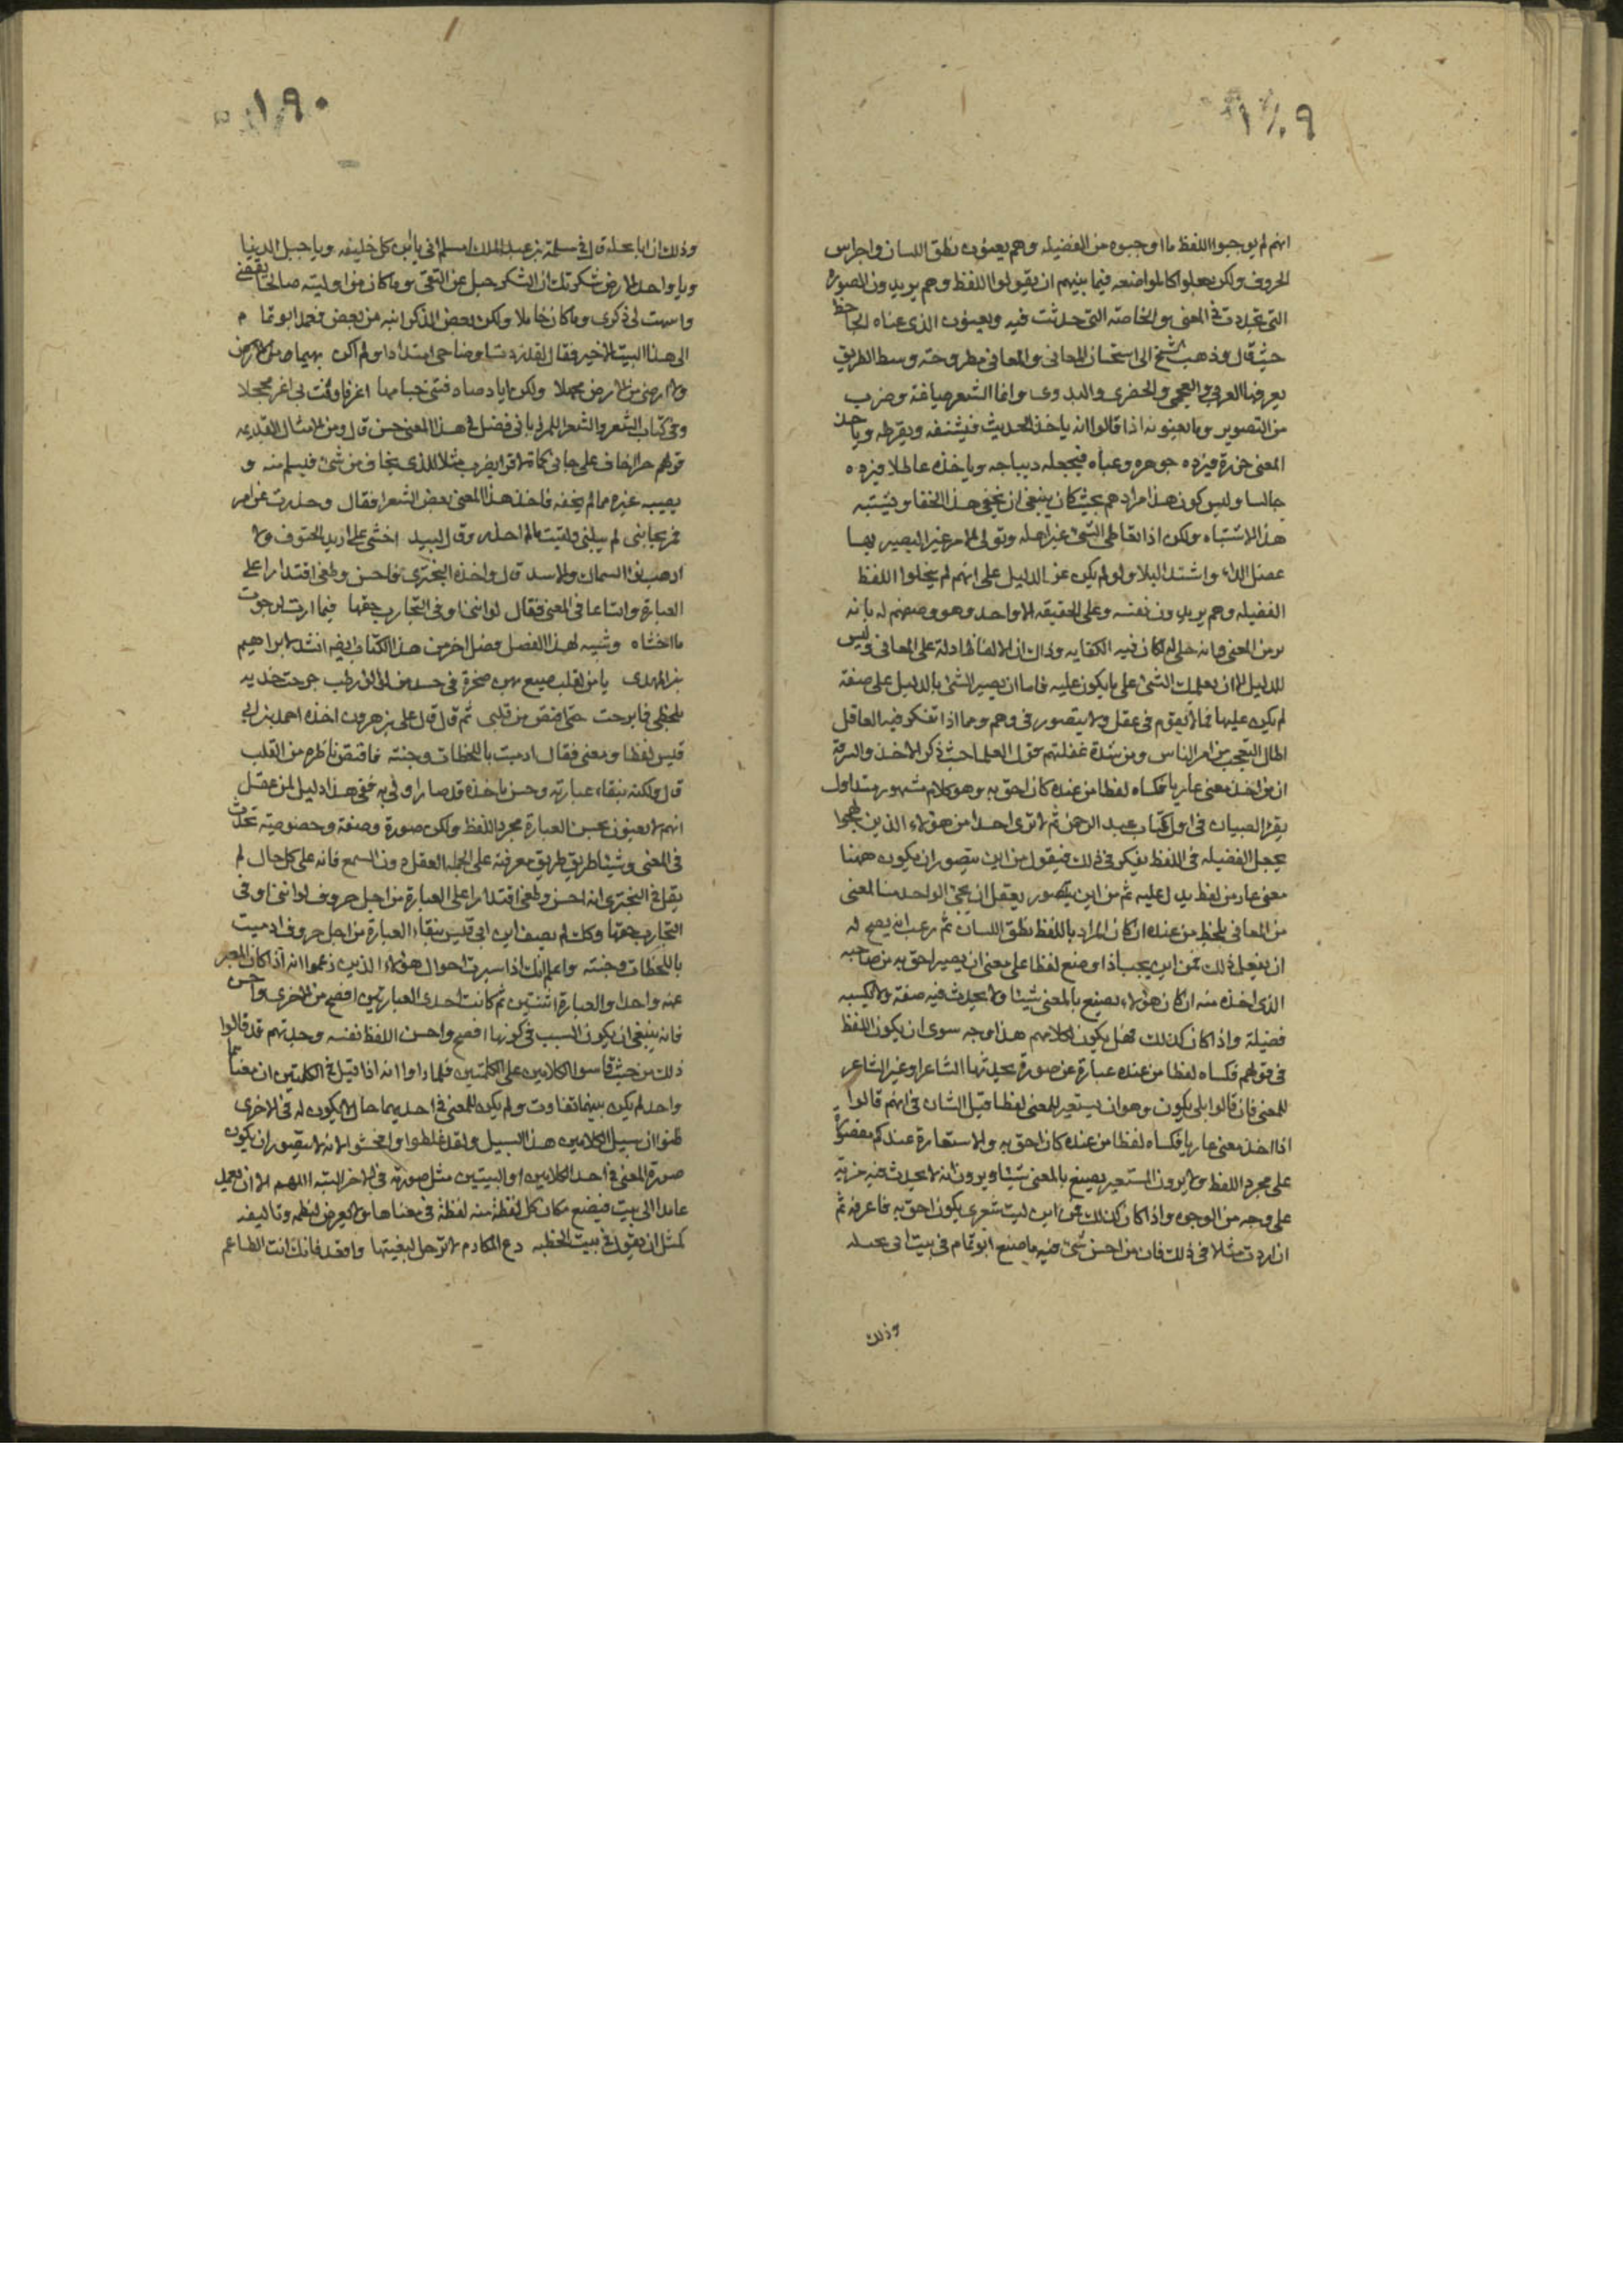 ١٨٩
انهم لم يوجبوا اللفظ ما اوجبوه من الفضيلة وهم يعنون نطق اللسان واجراس
الحروف ولكن جعلوا كالمواضعه فيما بينهم ان يقولوا اللفظ وهم يريدون الصورة
التى تحدث فى المعنى والخاصة التى حدثت فيه ويعنون الذى عناه الجاحظ
حيث قال وذهب الشيخ الى استحسان المعانى والمعانى مطروحة وسط الطريق
يعرفها العربى والعجمى والحضرى والبدوى وانما الشعر صياغة وضرب
من التصوير وما يعنونه اذا قالوا انه ياخذ الحديث فيشنفه ويقرطه وياخذ
المعنى خرزة فيرده جوهره وعباه فيجعله ديباجه وياخذه عاطلا فيرده
حاليا وليس كون هذا مرادهم بحيث كان ينبغى ان يخفى هذا الخفا ويشتبه
هذا الاشتباه ولكن اذا تعاطى الشئ غير اهله وتولى الامر غير البصير به
عضل الداء واشتد البلا ولو لم يكن من الدليل على انهم لم ينحلوا اللفظ
الفضيله وهم يريدون نفسه وعلى الحقيقه الا واحد وهو وصفهم له بانه
يزين المعنى وانه حلى له لكان فيه الكفايه وذاك ان الالفاظ ادلة على المعانى وليس
للدليل الا ان يعلمك الشئ على ما يكون عليه فاما ان يصير الشئ بالدليل على صفة
لم يكن عليها فما لا يقوم فى عقل ولا يتصور فى وهم ومما اذا تفكر فيه العاقل
اطال التعجب من امر الناس ومن شدة غفلتهم قول العلما حيث ذكروا الاخذ والسرقة
ان من اخذ معنى عاريا فكساه لفظا من عنده كان احق به وهو كلام مشهور متداول
يقرؤه الصبيان فى اول كتاب عبد الرحمن ثم لا ترى احدا من هؤلاء الذين لهجوا
بجعل الفضيله فى اللفظ يفكر فى ذلك فيقول من اين يتصور ان يكون ههنا
معنى عار من لفظ يدل عليه ثم من اين يتصور يعقل ان يجئ الواحد منا لمعنى
من المعانى بلفظ من عنده ان كان المراد باللفظ نطق اللسان ثم هب انه يصح له
ان يفعل ذلك فمن اين يجب اذا وضع لفظا على معنى ان يصير احق به من صاحبه
الذى اخذه منه ان كان هؤلاء يصنع بالمعنى شيئا ولا يحدث فيه صفة ولا يكسبه
فضيلة واذا كان كذلك فهل يكون لكلامهم هذا وجه سوى ان يكون اللفظ
فى قولهم فكساه لفظا من عنده عبارة عن صورة يحدثها الشاعر او غير الشاعر
للمعنى فان قالوا بلى يكون وهو ان يستعير للمعنى لفظا قيل الشان فى انهم قالوا
اذا اخذ معنى عاريا فكساه لفظا من عنده كان احق به والاستعارة عندكم مقصورة
على مجرد اللفظ ولا يرون المستعير يصنع بالمعنى شيئا ويرون انه لا يحدث فيه مزية
على وجه من الوجوه واذا كان كذلك فمن اين ليت شعرى يكون احق به فاعرفه ثم
ان اردت مثلا فى ذلك فان من احسن شئ فيه ما صنع ابو تمام فى بيت ابى نخيلة
وذلك
١٩٠
وذلك ان ابا نخيلة قال فى مسلمة بن عبد الملك امسلم انى يا ابن كل خليفه ويا جبل الدنيا
ويا واحد الارض شكرتك ان الشكر حبل من التقى وما كان من اوليته صالحا يقضى
وانبهت لى ذكرى وما كان خاملا ولكن بعض الذكر انبه من بعض فعمد ابو تمام
الى هذا البيت الاخير فقال لقد زدت اوضاحى امتدادا ولم اكن بهيما ولا ارضى
ولا ارضى من الارض مجهلا ولكن اياد صادفتنى جسامها اغر فاوفت بى اغر محجلا
وفى كتاب الشعر والشعراء للمرزبانى فضل فى هذا المعنى حسن قال ومن الامثال القديمه
قولهم حرا اخاف على جانى كماة لا قرا يضرب مثلا للذى يخاف من شئ فيسلم منه و
يصيبه غيره مما لم يخفه فاخذ هذا المعنى بعض الشعرا فقال وحذرت من امر
فمر بجانبى لم يبلنى ولقيت مالم احذر وقال لبيد اخشى على اربد الحتوف ولا
ارهب نوا السماك والاسد قال واخذه البحترى فاحسن وطغى اقتدارا على
العبارة واتساعا فى المعنى فقال لو اننى اوفى التجارب حقها فيما ارت لرجوت
ما اخشاه وشبيه لهذا الفصل فصل اخر من هذا الكتاب ايضا انشد لابراهيم
بن المهدى يا من لقلب صيغ من صخرة فى جسد من لؤلؤ رطب جرحت خديه
بلحظى فما برحت حتى اقتص من قلبى ثم قال قال على بن هرون اخذه احمد بن ابى
قيس لفظا ومعنى فقال ادميت باللحظات وجنته فاقتص ناظره من القلب
قال ولكنه بنقاء عبارته وحسن ماخذه قد صار اولى به ففى هذا دليل لمن عقل
انهم لا يعنون بحسن العبارة مجرد اللفظ ولكن صورة وصفة وخصوصية تحدث
فى المعنى وشيئا طريق معرفته على الجملة العقل دون السمع فانه على كل حال لم
يقل فى البحترى انه احسن وطغى اقتدارا على العبارة من اجل حروف لو اننى اوفى
التجارب حقها وكذلك لم يصف ابن ابى قيس بنقاء العبارة من اجل حروف ادميت
باللحظات وجنته واعلم انك اذا سبرت احوال هؤلاء الذين زعموا انه اذا كان المعبر
عنه واحدا والعبارة اثنتين ثم كانت احدى العبارتين افصح من الاخرى واحسن
فانه ينبغى ان يكون السبب فى كونها افصح واحسن اللفظ نفسه وجدتهم قد قالوا
ذلك من حيث قاسوا الكلامين على الكلمتين فلما راوا انه اذا قيل فى الكلمتين ان معناهما
واحد لم يكن بينهما تفاوت ولم يكن للمعنى فى احديهما حال لا يكون له فى الاخرى
ظنوا ان سبيل الكلامين هذا السبيل ولقد غلطوا وافحشوا لانه لا يتصور ان يكون
صورة المعنى فى احد الكلامين او البيتين مثل صورته فى الاخر البته اللهم الا ان يعمد
عامد الى بيت فيضع مكان كل لفظة منه لفظة فى معناها ولا يعرض لنظمه وتاليفه
كمثل ان يقول فى بيت الحطيه دع المكارم لا ترحل لبغيتها واقعد فانك انت الطاعم